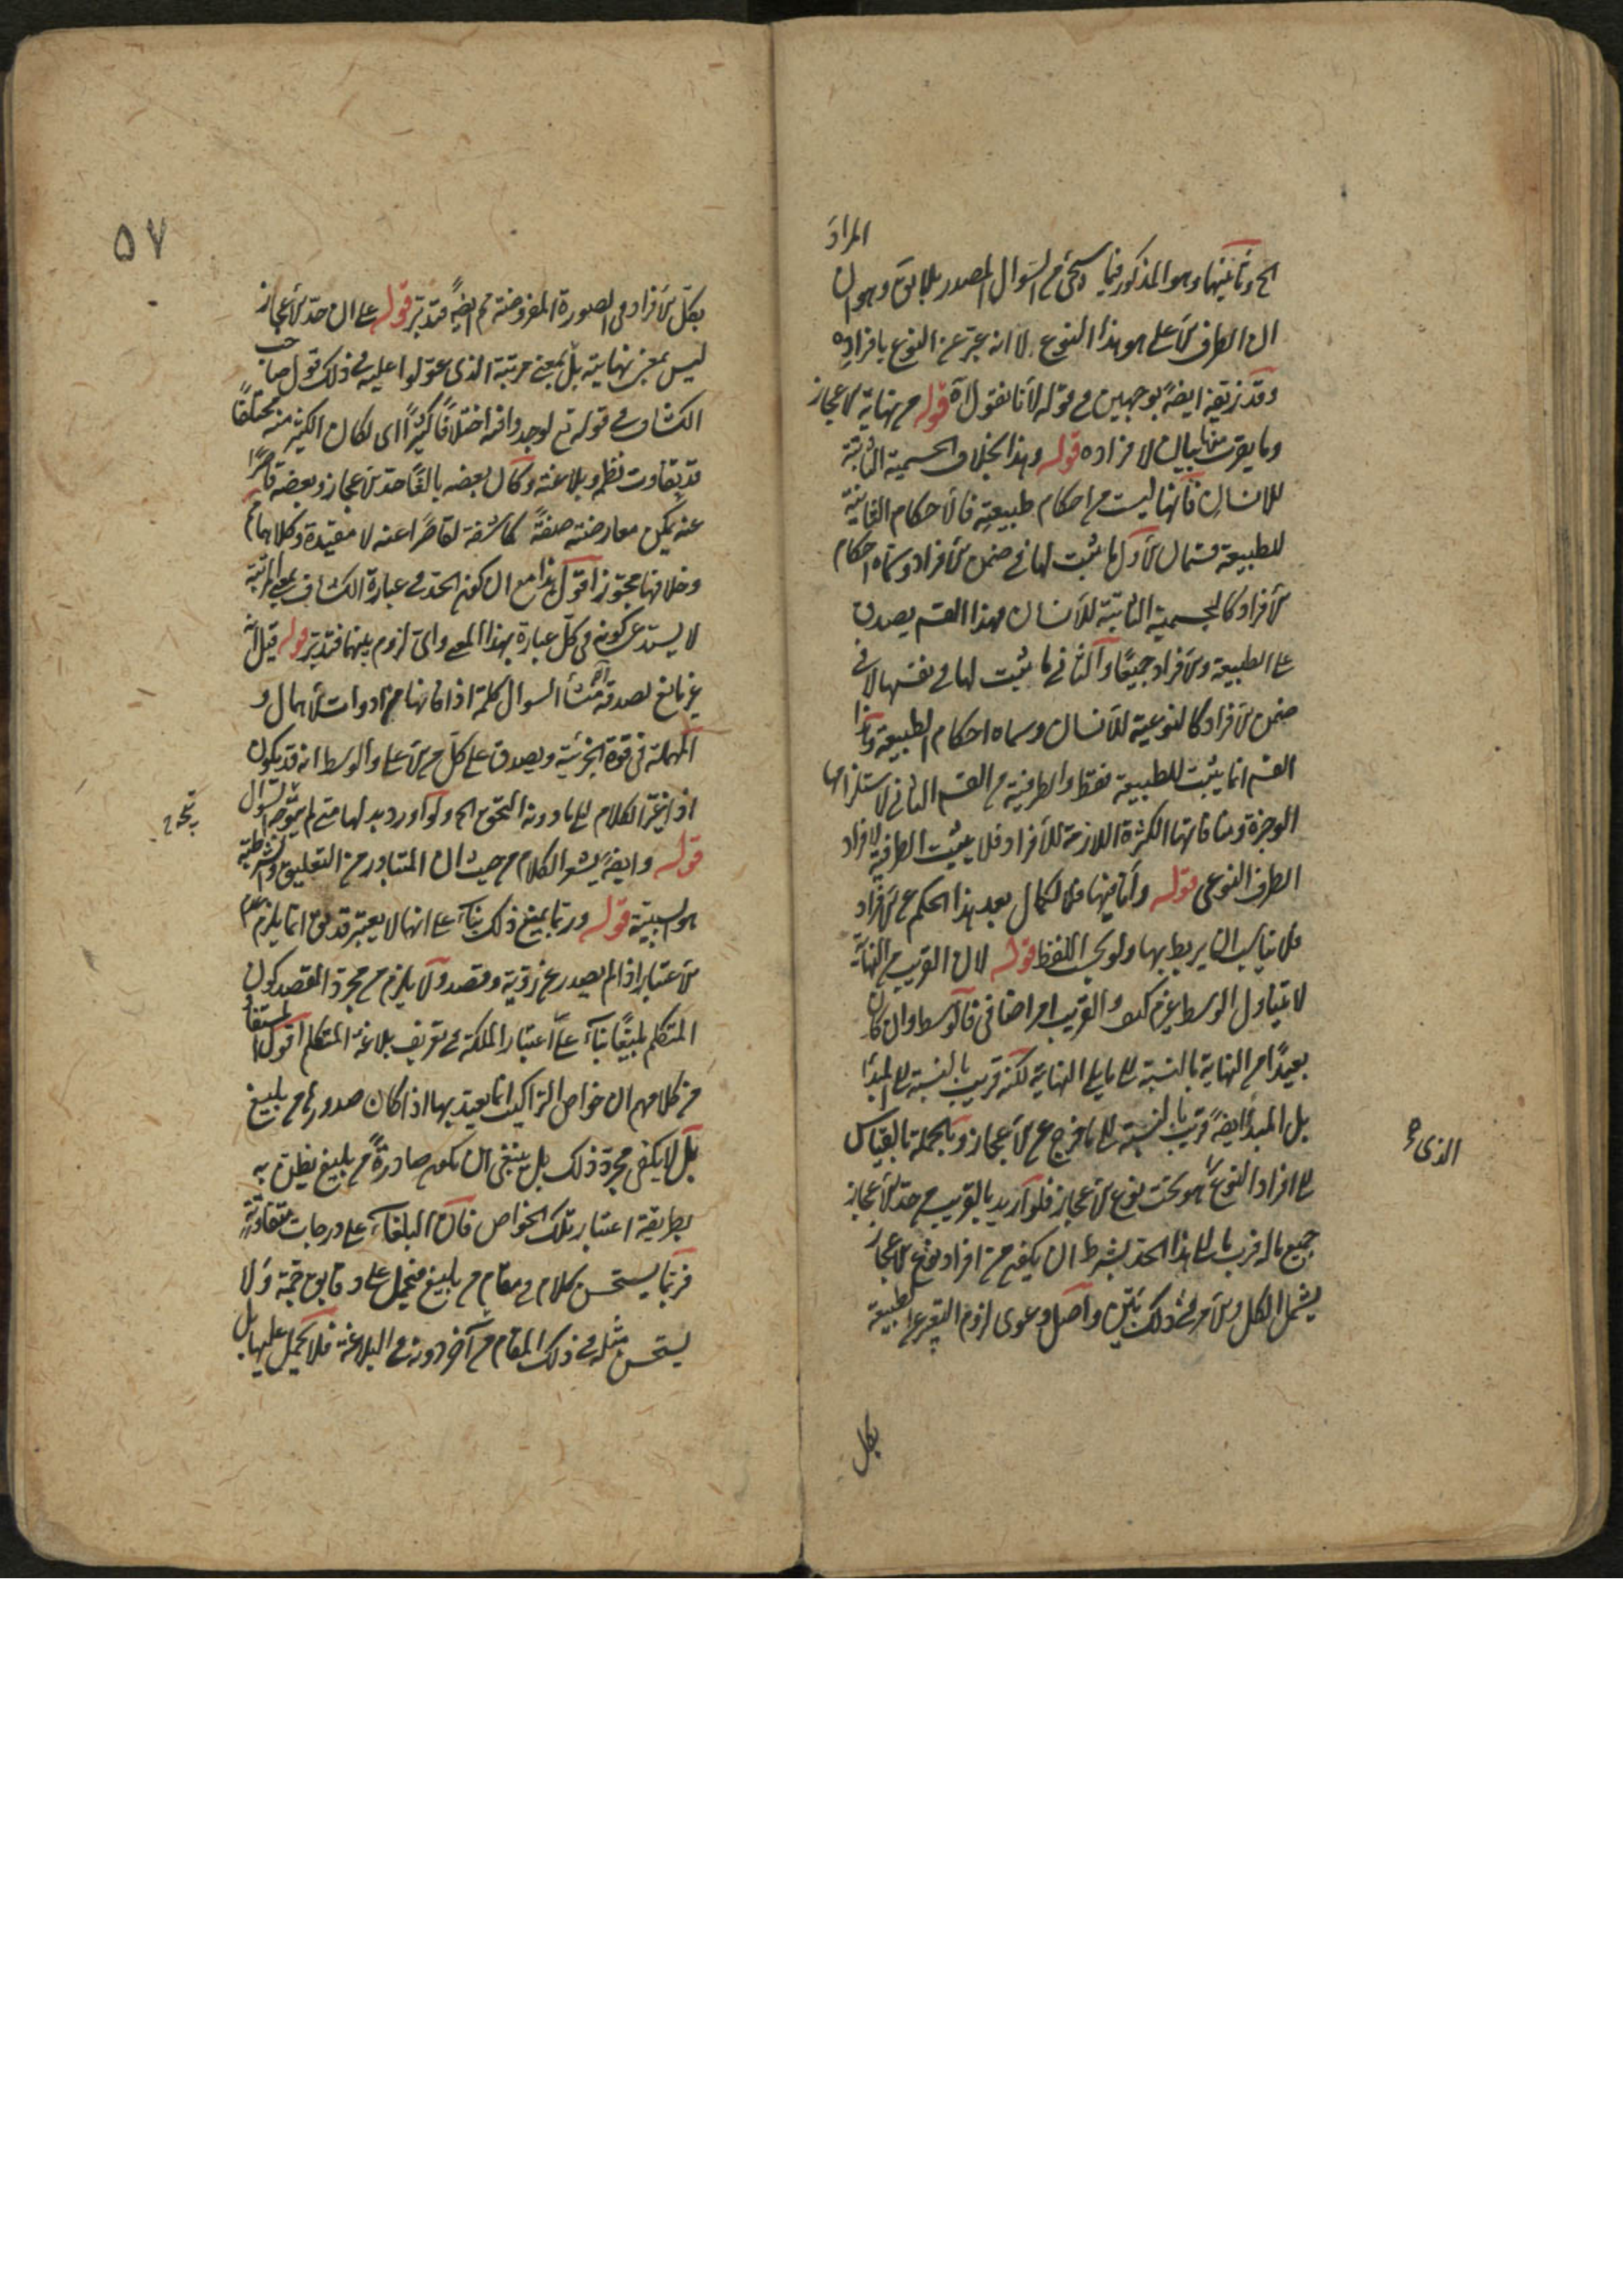 المراد
الخ وثانيهما وهو المذكور فيما سيجئ من السؤال المصدر بلا يق وهو ان
ان الطرف الاعلى هو هذا النوع لا انه عبر عن النوع بافراده
وقد زيفه ايضا بوجهين في قوله لانا نقول اه قوله من نهاية الاعجاز
وما يقرب منها بيان لافراده قوله وهذا بخلاف الجسمية الثابتة
للانسان فانها ليست من احكام طبيعته فالاحكام الثابتة
للطبيعة قسمان الاول ما يثبت لها في ضمن الافراد وسماه احكام
الافراد كالجسمية الثابتة للانسان فهذا القسم يصدق
على الطبيعة والافراد جميعا والثاني ما يثبت لها في نفسها لا في
ضمن الافراد كالنوعية للانسان وسماه احكام الطبيعة وهذا
القسم انما يثبت للطبيعة فقط والطرفية من القسم الثاني لاستلزامها
الوحدة ومنافاتها الكثرة اللازمة للافراد فلا يثبت الطرفية لافراد
الطرف النوعي قوله واما فيهما فلا لكمال بعد هذا الحكم عن الافراد
فلا يناسب ان يربط بها ولو بحسب اللفظ قوله لان القريب من النهاية
لا يتناول الوسط غير والقريب امر اضافي فالوسط وان كان
بعيدا من النهاية بالنسبة الى ما يلي النهاية لكنه قريب بالنسبة الى المبدأ
بل المبدأ ايضا قريب بالنسبة الى ما خرج عن الاعجاز وبالجملة بالقياس
الى افراد النوع الذي هو تحت نوع الاعجاز فلو اريد بالقريب من حد الاعجاز
جميع ما له قرب ما الى هذا الحد بشرط ان يكون من افراد نوع الاعجاز
يشمل الكل والامر في ذلك بين واصل دعوى لزوم التعبير عن الطبيعة
الذي صح
بكل
٥٧
بكل الافراد في الصورة المفروضة مم ايضا فتدبر قوله على ان حد الاعجاز
ليس بمعنى نهايته بل بمعنى مرتبة الذي عولوا عليه في ذلك قول صاحب
الكشاف في قوله تع لوجدوا فيه اختلافا كثيرا اى لكان الكثير منه مختلفا
قد تفاوت نظمه وبلاغته وكان بعضه بالغا حد الاعجاز وبعضه قاصرا
عنه يمكن معارضته صفة كاشفة لقاصرا عنه لا مقيدة وكلاهما
وخلافهما مجوز اقول هذا مع ان كون الحد في عبارة الكشاف بمعنى المرتبة
لا يستدعي كونه في كل عبارة بهذا المعنى واى لزوم بينهما فتدبر قوله قيل لانه
غير مانع لصدقه منشأ السؤال كلمة اذا فانها من ادوات الاهمال و
المهملة في قوة الجزئية ويصدق على كل من الاعلى والوسط انه قد يكون
اذا غير الكلام الى ما دونه التحق الخ ولو اورد بدلها متى لم يتوجه السؤال
يتجه
قوله وايضا يشعر الكلام من حيث ان المتبادر من التعليق والشرطية
هو السببية قوله وربما يمنع ذلك بناء على انها لا يعتبر قد يق انما يلزم عدم
الاعتبار اذا لم يصدر عن روية وقصد ولا يلزم من مجرد القصد كون
المتكلم بليغا بناء على اعتبار الملكة في تعريف بلاغة المتكلم اقول المستفاد
من كلامهم ان خواص التراكيب انما يعتد بها اذا كان صدورها من بليغ
بل لا يكفي مجرد ذلك بل ينبغي ان يكون صادرة من بليغ يظن به
بطريقة اعتبار تلك الخواص فان البلغاء على درجات متفاوتة
فربما يستحسن كلام في مقام من بليغ فيحمل على دقايق جمة ولا
يستحسن مثله في ذلك المقام من آخر دونه في البلاغة فلا يحمل عليها بل